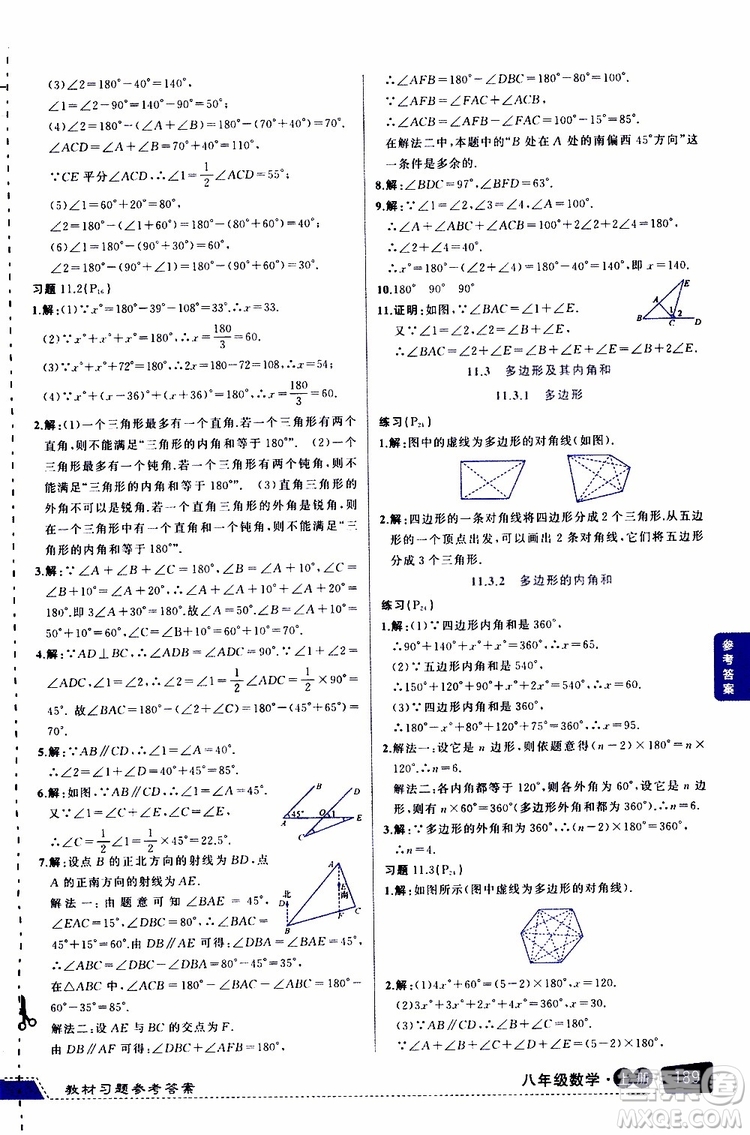 (3)∠2=180°-40°=140°,
∠1=∠2-90°=140°-90°=50°;
(4)∠2+∠A+∠B=180°.
∠ACD=∠A+∠B=70°+40°=110°.
∵CE 平分∠ACD,∴∠1=1/2∠ACD=55°;
(5)∠1=60°+20°=80°.
∠2=180°-(80°+60°)=40°;
(6)∠1=180°-(90°+30°)=60°.
∠2=180°-(90°+50°)=40°.
习题 11.2(P₁₆)
1.解:(1)∵x°=180°-39°-108°=33°.∴x=33.
(2)∵x°+x°+x°=180°.∴x=180/3=60.
(3)∵x°+x°+72°=180°.2x=180-72=108,x=54;
(4)∵x°+(x-36)°+(x+36)°=180°.∴x=180/3=60.
2.解:(1)一个三角形最多有一个直角.若三角形有两个
直角,则不能满足“三角形的内角和等于180°”. (2)一个
三角形最多有一个钝角.若三角形有两个钝角,则不能
满足“三角形的内角和等于 180°”. (3)直角三角形的
外角不可以是锐角.若一个三角形的外角是锐角,则
在一个三角形中有一个直角和一个钝角,不能满足“三
角形的内角和等于 180°”.
3.解:∵∠A+∠B+∠C=180°,∴∠A+∠A+10°+
∠B+10°=180°.即3∠A+30°=180°.故∠A=50°,∠B=
50°+10°=60°.∠C=60°+10°=70°.
4.解:∵AD⊥BC,∴∠ADC=∠ADB=90°.∵∠1+∠2=
∠ADC,∠1=∠2,∴∠1=∠2=1/2∠ADC=1/2×90°=
45°.故∠BAC=180°-(∠2+∠C)=180°-(45°+65°)=
70°.
5.解:∵AB∥CD,∴∠A=∠1=40°.∴∠2=∠D+∠1=85°.
6.解:如图.∵AB∥CD.∴∠1=∠A=45°.
又∵∠1=∠C+∠E,∠C=∠E,
∴∠C=1/2∠1=1/2×45°=22.5°.
7.解:设点 B 的正北方向的射线为 BD,点
A 的正南方向的射线为 AE.
解法一:由题意可知∠BAE=45°,
∠EAC=15°.∠DBC=80°.
由 DB∥AE 可得:∠DBA=∠BAE=45°.
∴∠ABC=∠DBC-∠DBA=80°-45°=35°.
在△ABC 中,∠ACB=180°-∠ABC-∠BAE-∠EAC=85°.
解法二:设 AE 与 BC 的交点为 F.
由 DB∥AE 可得:∠DBC+∠AFB=180°.
∴∠AFB=180°-∠DBC=180°-80°=100°.
∴∠AFB=∠FAC+∠ACB.
∴∠ACB=∠AFB-∠FAC=100°-15°=85°.
在解法二中,本题中的“B 处在 A 处的南偏西 45°方向”这
一条件是多余的.
8.解:∠BDC=97°,∠BFD=63°.
9.解:∵∠1=∠2,∠3=∠4,∠A=100°,
∴∠2+∠4=1/2(180°-∠A)=40°.
∴x°=180°-(∠2+∠4)=140°.∴x=140.
10.180° 90° 90°
11.证明:如图.∵∠BAC=∠1+∠E.
又∵∠2=∠B+∠E,∠1=∠2.
∴∠BAC=∠2+∠E=∠B+2∠E.
11.3 多边形及其内角和
11.3.1 多边形
练习(P₂₁)
1.解:图中的虚线为多边形的对角线(如图).
2.解:四边形的一条对角线将四边形分成 2 个三角形.从五边
形的一个顶点出发,可以画出 2 条对角线.它们将五边形
分成 3 个三角形.
11.3.2 多边形的内角和
练习(P₂₄)
1.解:(1)∵四边形内角和是 360°,
∴90°+140°+x°+x°=360°.∴x=65.
(2)∵五边形内角和是 540°,
∴150°+120°+90°+x°+2x°=540°.∴x=60.
(3)∵四边形内角和是 360°,
∴180°-x°+60°+90°+75°=360°.∴x=95.
2.解法一:设它是 n 边形,则依题意得(n-2)×180=
120n.∴n=6.
解法二:各内角都等于 120°,则各外角为 60°.设边数为
n,则有 n×60°=360°(多边形外角和为 360°).∴n=6.
3.解:∵多边形的外角和为 360°,∴(n-2)×180°=360°,
∴n=4.
习题 11.3(P₂₄)
1.解:如图所示(图中虚线为多边形的对角线).
2.解:(1)4x°+60°=(5-2)×180°.∴x=120.
(2)3x°+3x°+4x°+2x°=360°.∴x=30.
教材习题参考答案
八年级数学·上册
139
参考答案